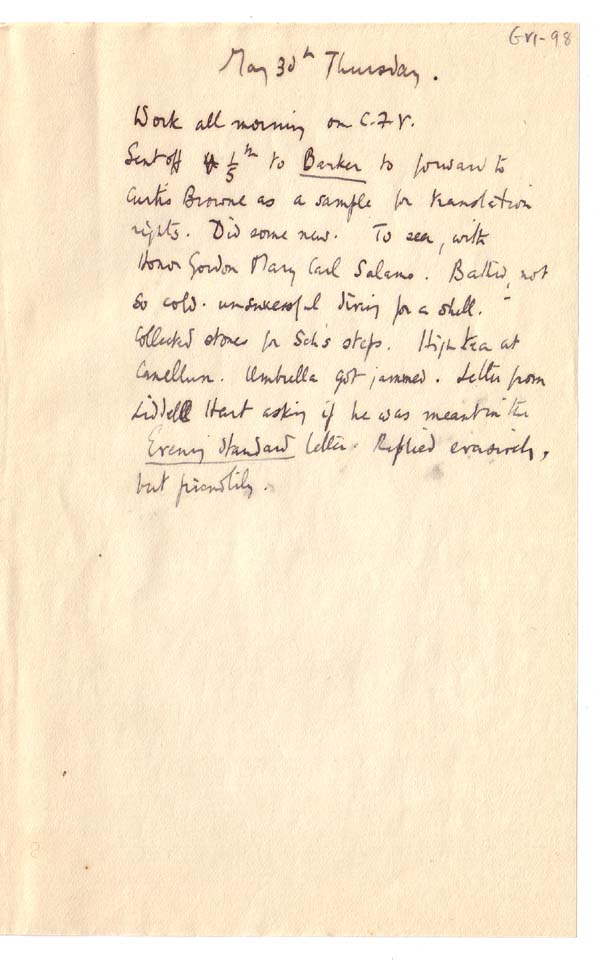 GVI-98
May 30th Thursday.
Work all morning on C.F.V.
Sent off 1/5th to Barker to forward to
Curtis Browne as a sample for translation
rights. Did some new. To sea, with
Honor Gordon Mary Carl Salamo. Bathed, not
so cold. unsuccessful diving for a shell.
Collected stones for Sch's steps. High tea at
Canellun. Umbrella got jammed. Letter from
Liddell Hart asking if he was meant in the
Evening Standard letter. Replied evasively,
but friendlily.